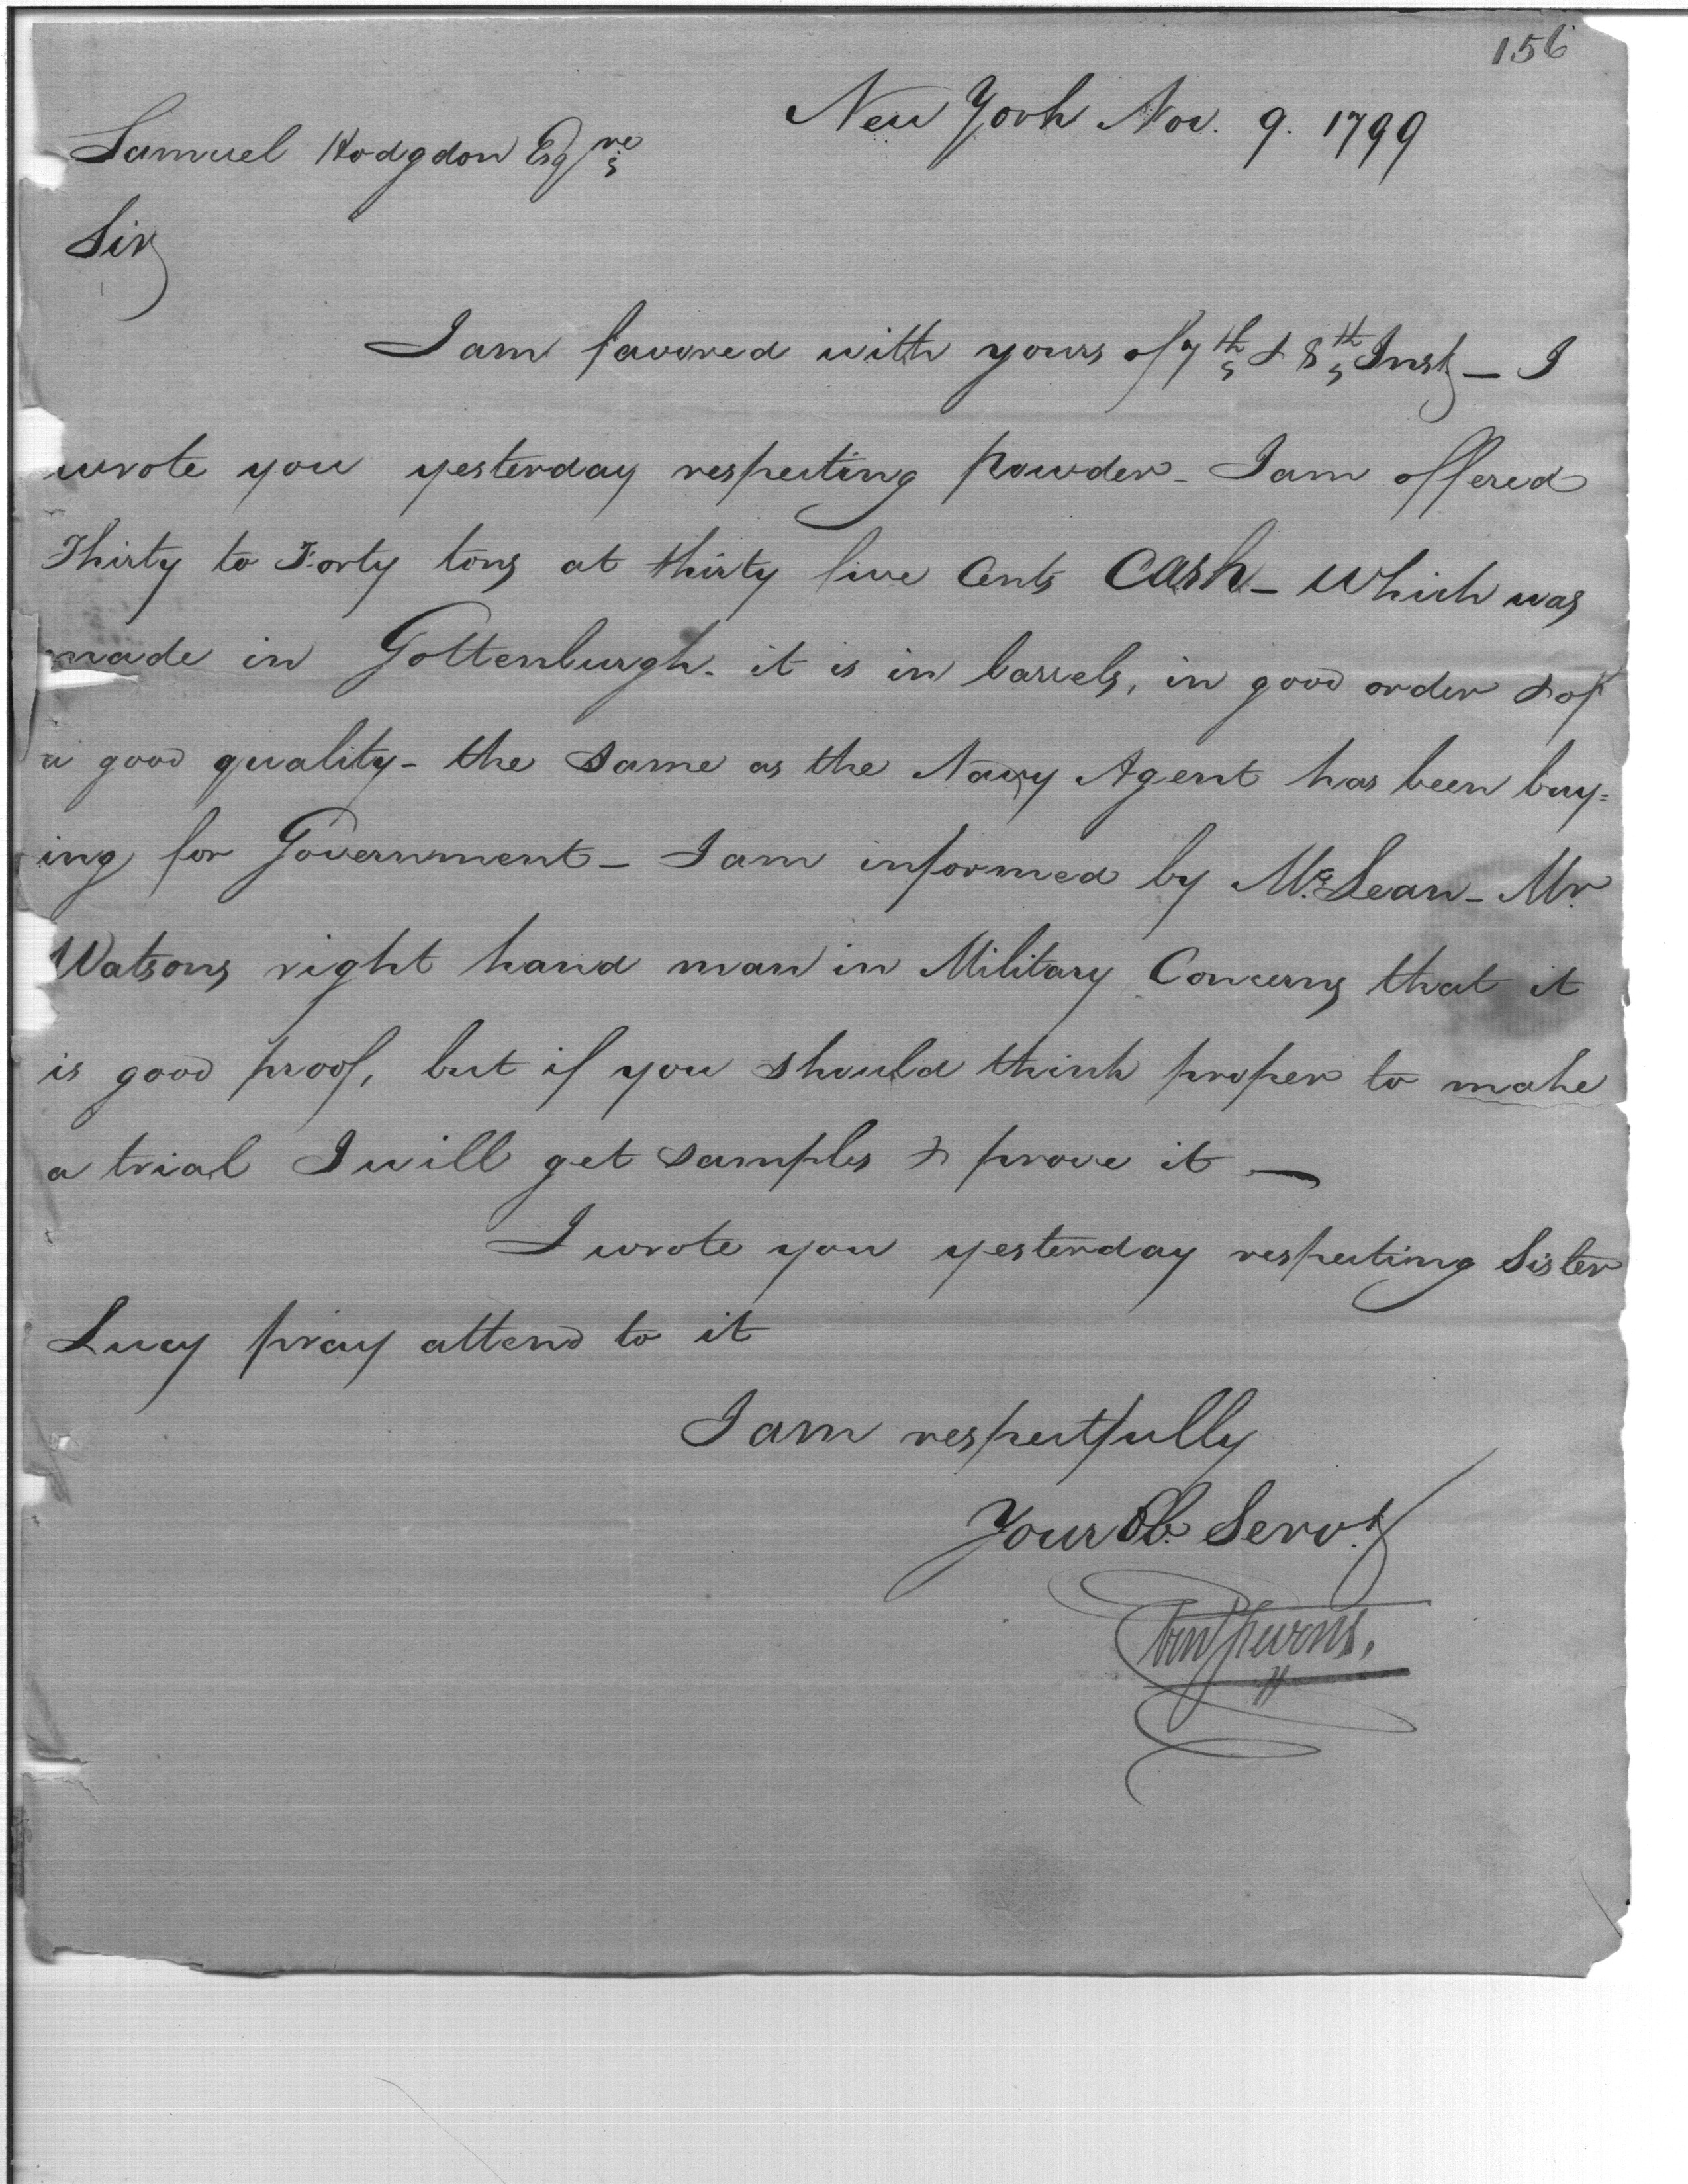 156
New York Nov. 9. 1799
Samuel Hodgdon Esqre
Sir
I am favored with yours of 7th & 8th Inst - I
wrote you yesterday respecting powder - I am offered
Thirty to Forty tons at thirty five Cents Cash - which was
made in Gottenburgh. it is in barrels, in good order & of
a good quality - the same as the Navy Agent has been buy=
ing for Government - I am informed by Mc. Lean - Mr.
Watsons right hand man in Military Concerns that it
is good proof, but if you should think proper to make
a trial I will get samples & prove it —
I wrote you yesterday respecting Sister
Lucy pray attend to it
I am respectfully
Your Ob. Servt.